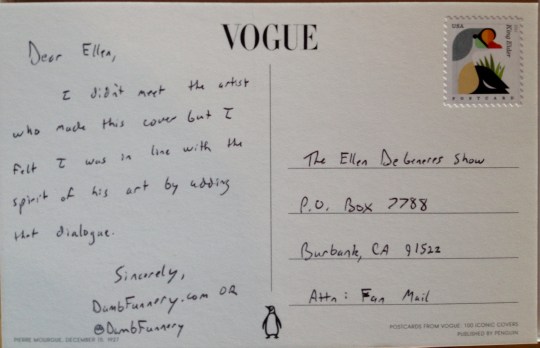 VOGUE
Dear Ellen,
I didn't meet the artist
who made this cover but I
felt I was in line with the
spirit of his art by adding
that dialogue.
Sincerely,
DambFunnery.com OR
@DambFunnery
PIERRE MOURGUE, DECEMBER 15, 1927
USA
King Eider
POSTCARD
The Ellen DeGeneres Show
P.O. Box 7788
Burbank, CA 91522
Attn: Fan Mail
POSTCARDS FROM VOGUE: 100 ICONIC COVERS
PUBLISHED BY PENGUIN